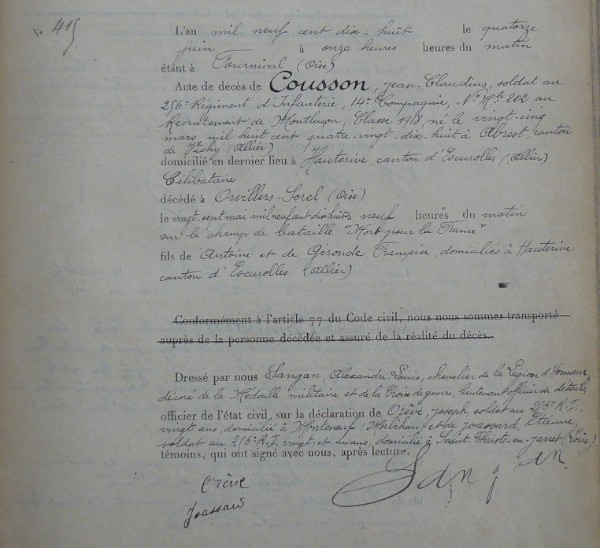 N° 415
L'an mil neuf cent dix-huit le quatorze
juin à onze heures heures du matin
étant à Fournival (Oise)
Acte de décès de Cousson, Jean-Claudius, soldat au
256e Régiment d'Infanterie, 14e Compagnie, N° Mle 202 au
Recrutement de Montluçon, Classe 1918 né le vingt-cinq
mars mil huit cent quatre-vingt-dix-huit à Abrest, canton
de Vichy (Allier)
domicilié en dernier lieu à Hauterive canton d'Escurolles (Allier)
Célibataire
décédé à Orvillers-Sorel (Oise)
le vingt-sept mai mil neuf cent dix huit à neuf heures du matin
sur le champ de bataille "Mort pour la France"
fils de Antoine et de Gironde Françoise, domiciliés à Hauterive
canton d'Escurolles (Allier)
Conformément à l'article 77 du Code civil, nous nous sommes transporté
auprès de la personne décédée et assuré de la réalité du décès.
Dressé par nous Sangan, Alexandre Louis, chevalier de la Légion d'Honneur
décoré de la Médaille militaire et de la Croix de guerre, lieutenant officier de détails,
officier de l'état civil, sur la déclaration de Orève, Joseph, soldat au 256e R.I.
vingt ans, domicilié à et de Joassard, Etienne,
soldat au 256e R.I. vingt et un ans, domicilié à Saint Priest-en-Jarret (Loire)
témoins, qui ont signé avec nous, après lecture.
Orève
Joassard
Sangan